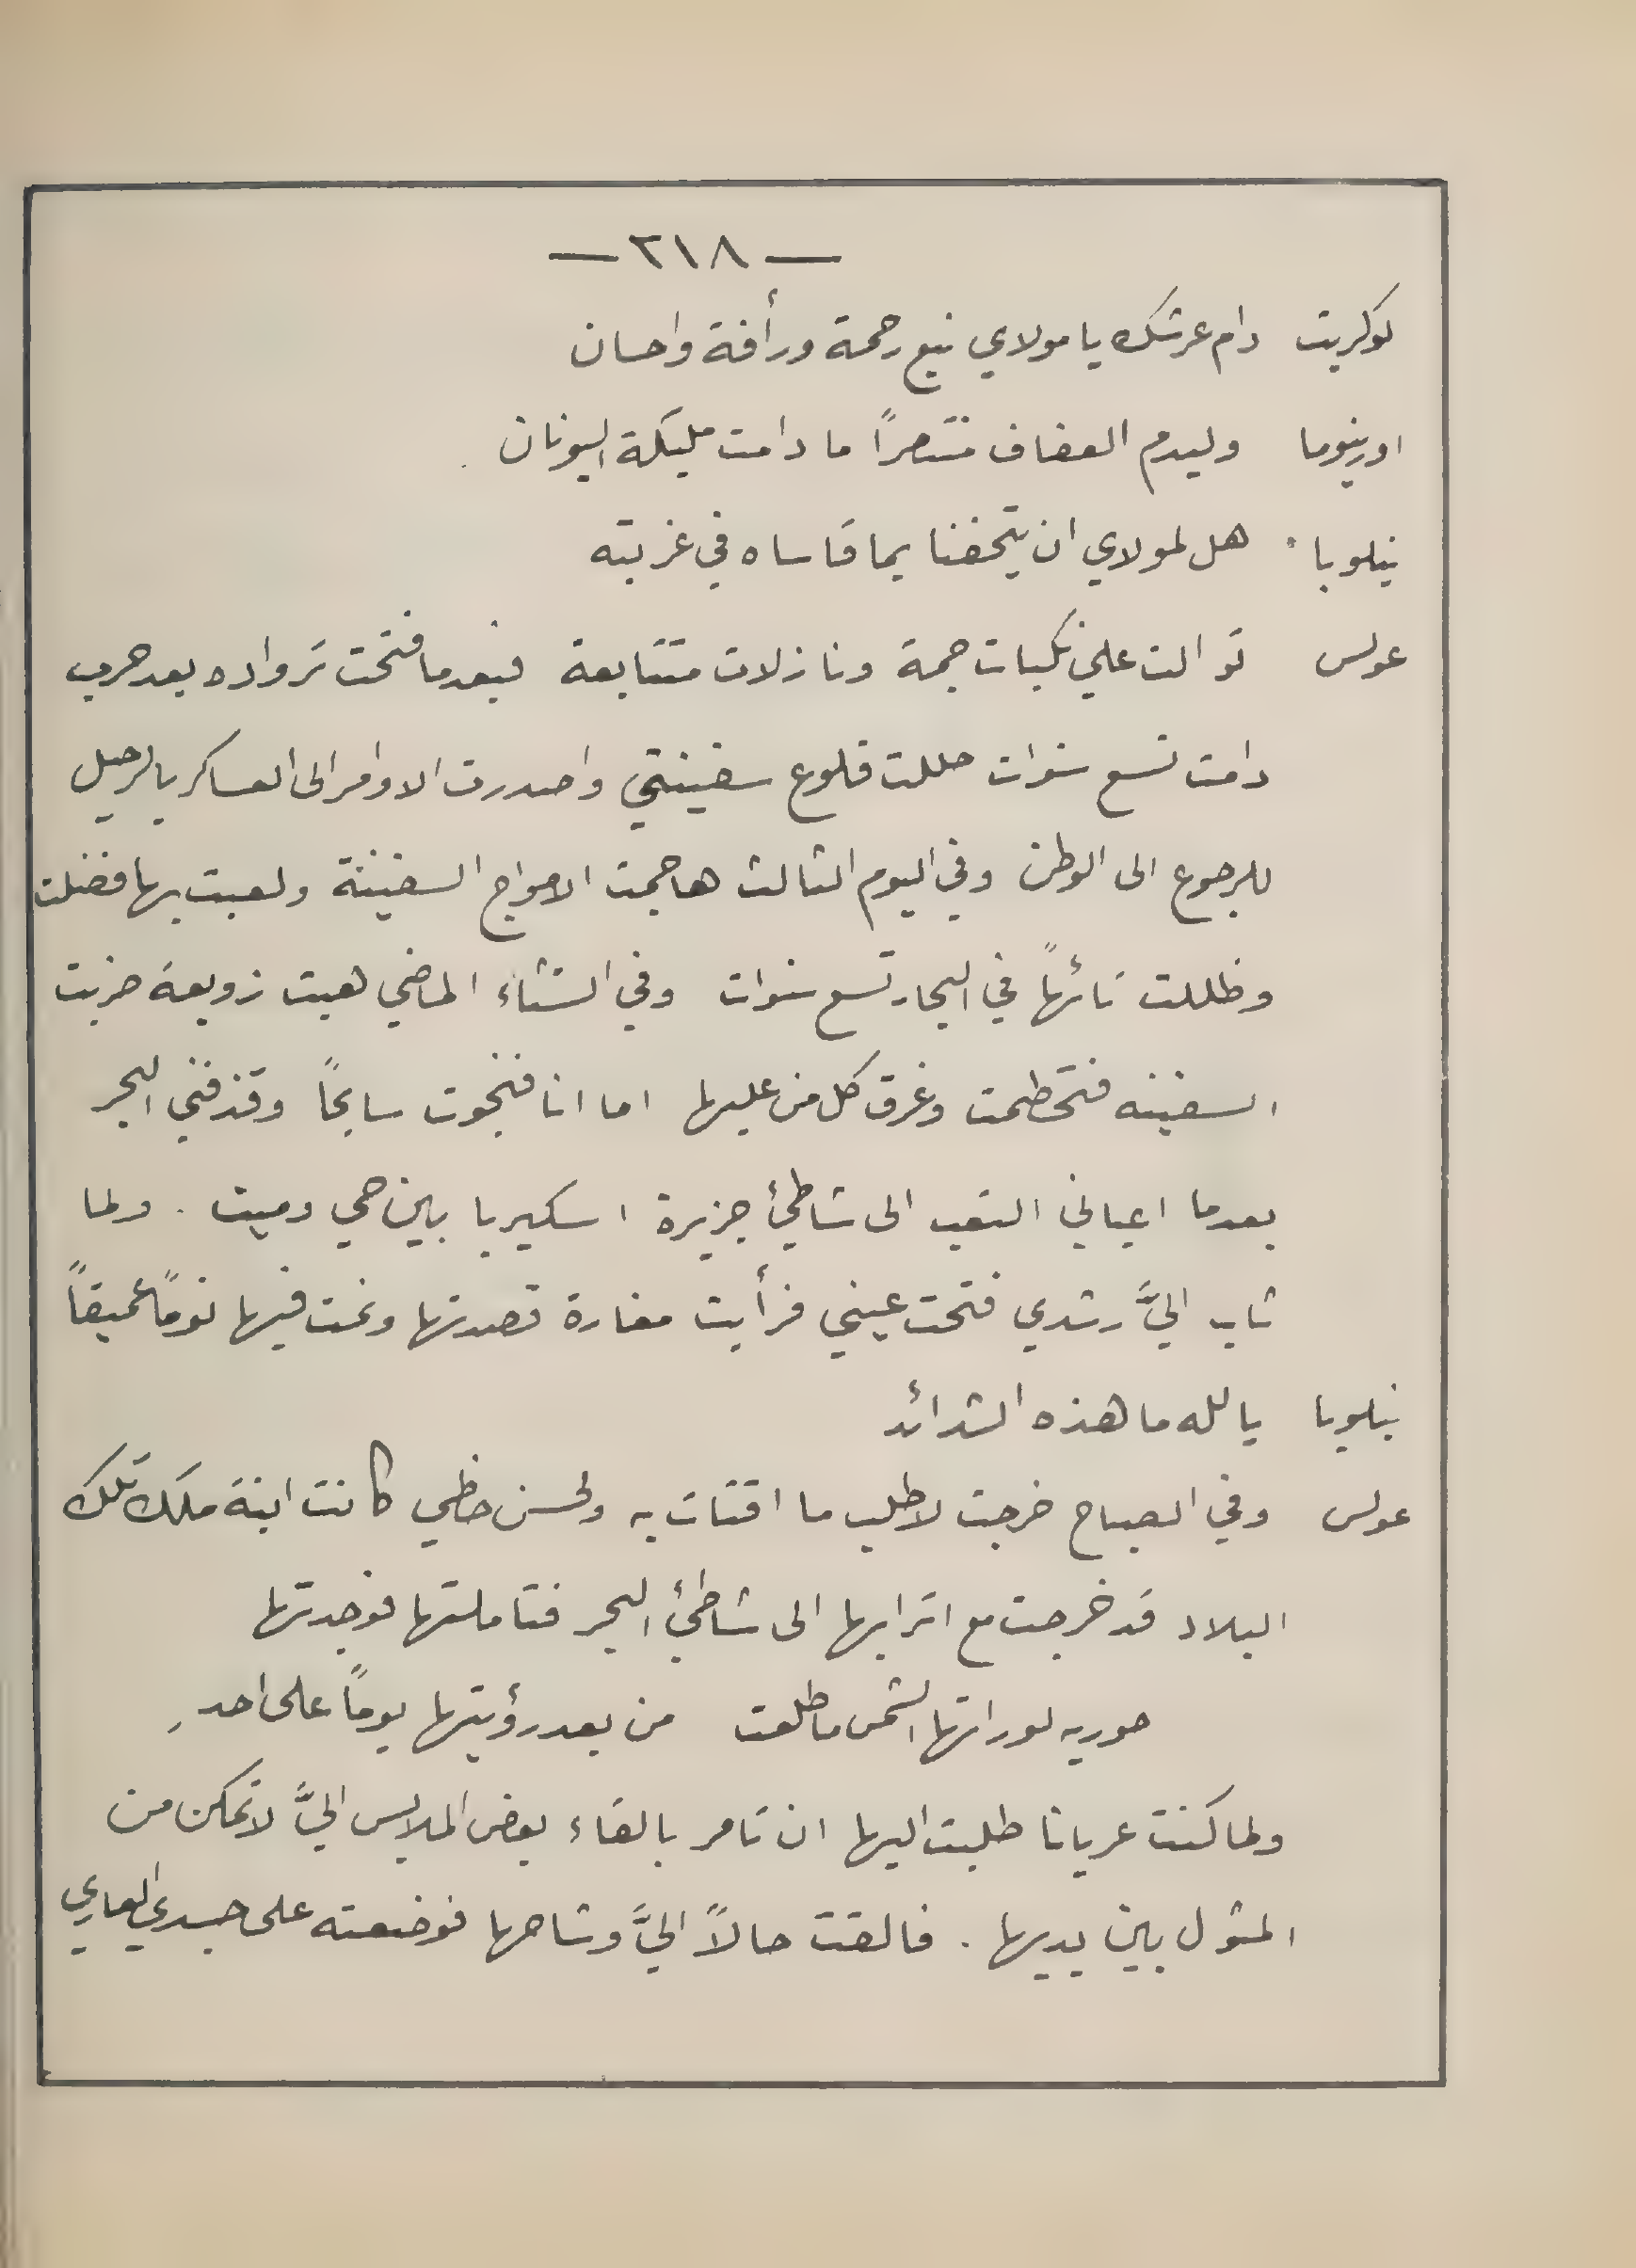 — ٢١٨ —
لوكريت دام عرشك يا مولاي نبع رحمة ورأفة واحسان
اورينوما وليدم العفاف منتصراً ما دامت مليكة اليونان
نيلوبا هل لمولاي ان يتحفنا بما قاساه في غربته
عولس توالت علي نكبات جمة ونازلات متتابعة فبعدما فتحت ترواده بعد حرب
دامت تسع سنوات حللت قلوع سفينتي واصدرت الاوامر الى العساكر بالرحيل
للرجوع الى الوطن وفي اليوم الثالث هاجمت الامواج السفينة ولعبت بها فضلت
وظللت تائهاً في البحار تسع سنوات وفي الشتاء الماضي هبت زوبعة ضربت
السفينه فتحطمت وغرق كل من عليها اما انا فنجوت سابحاً وقذفني البحر
بعدما اعياني التعب الى شاطئ جزيرة اسكيريا بين حي وميت . ولما
ثاب اليَّ رشدي فتحت عيني فرأيت مغارة قصدتها ونمت فيها نوماً عميقاً
نيلوبا يا لله ما هذه الشدائد
عولس وفي الصباح خرجت لاطلب ما اقتات به ولحسن حظي كانت ابنة ملك تلك
البلاد قد خرجت مع اترابها الى شاطئ البحر فتاملتها فوجدتها
حوريه لو راتها الشمس ما طلعت من بعد رؤيتها يوماً على احدِ
ولما كنت عريانا طلبت اليها ان تامر بالقاء بعض الملابس اليَّ لاتمكن من
المثول بين يديها . فالقت حالاً اليَّ وشاحها فوضعته على جسدي العاري